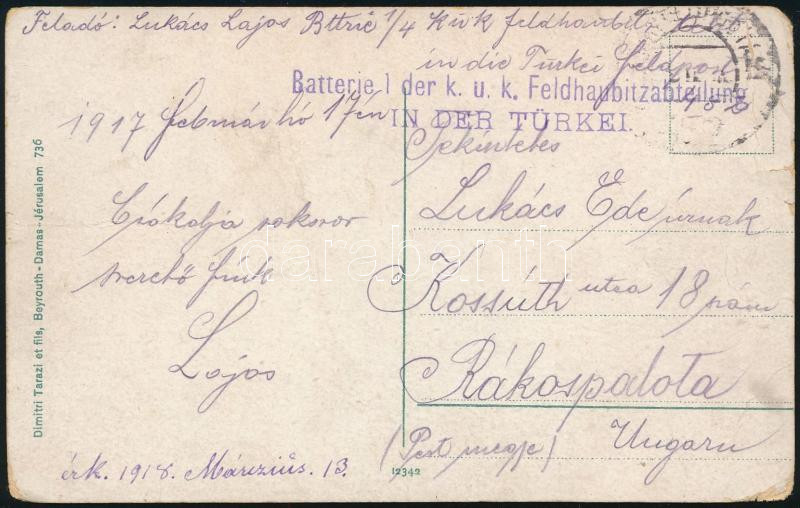 Feladó: Lukács Lajos Bttrie 1/4 K.u.k feldhaubitz
in die Türkei feldpost
Batterie 1 der k. u. k. Feldhaubitzabteilung
IN DER TÜRKEI.
1917 február hó 17én
Tekintetes
Lukács Ede úrnak
Kossúth utca 18 szám
Rákospalota
(Pest megye) Ungarn
Csókolja sokszor
szerető fiuk
Lajos
érk. 1918. Márczius. 13.
12342
Dimitri Tarazi et fils, Beyrouth - Damas - Jérusalem 736
darabanth